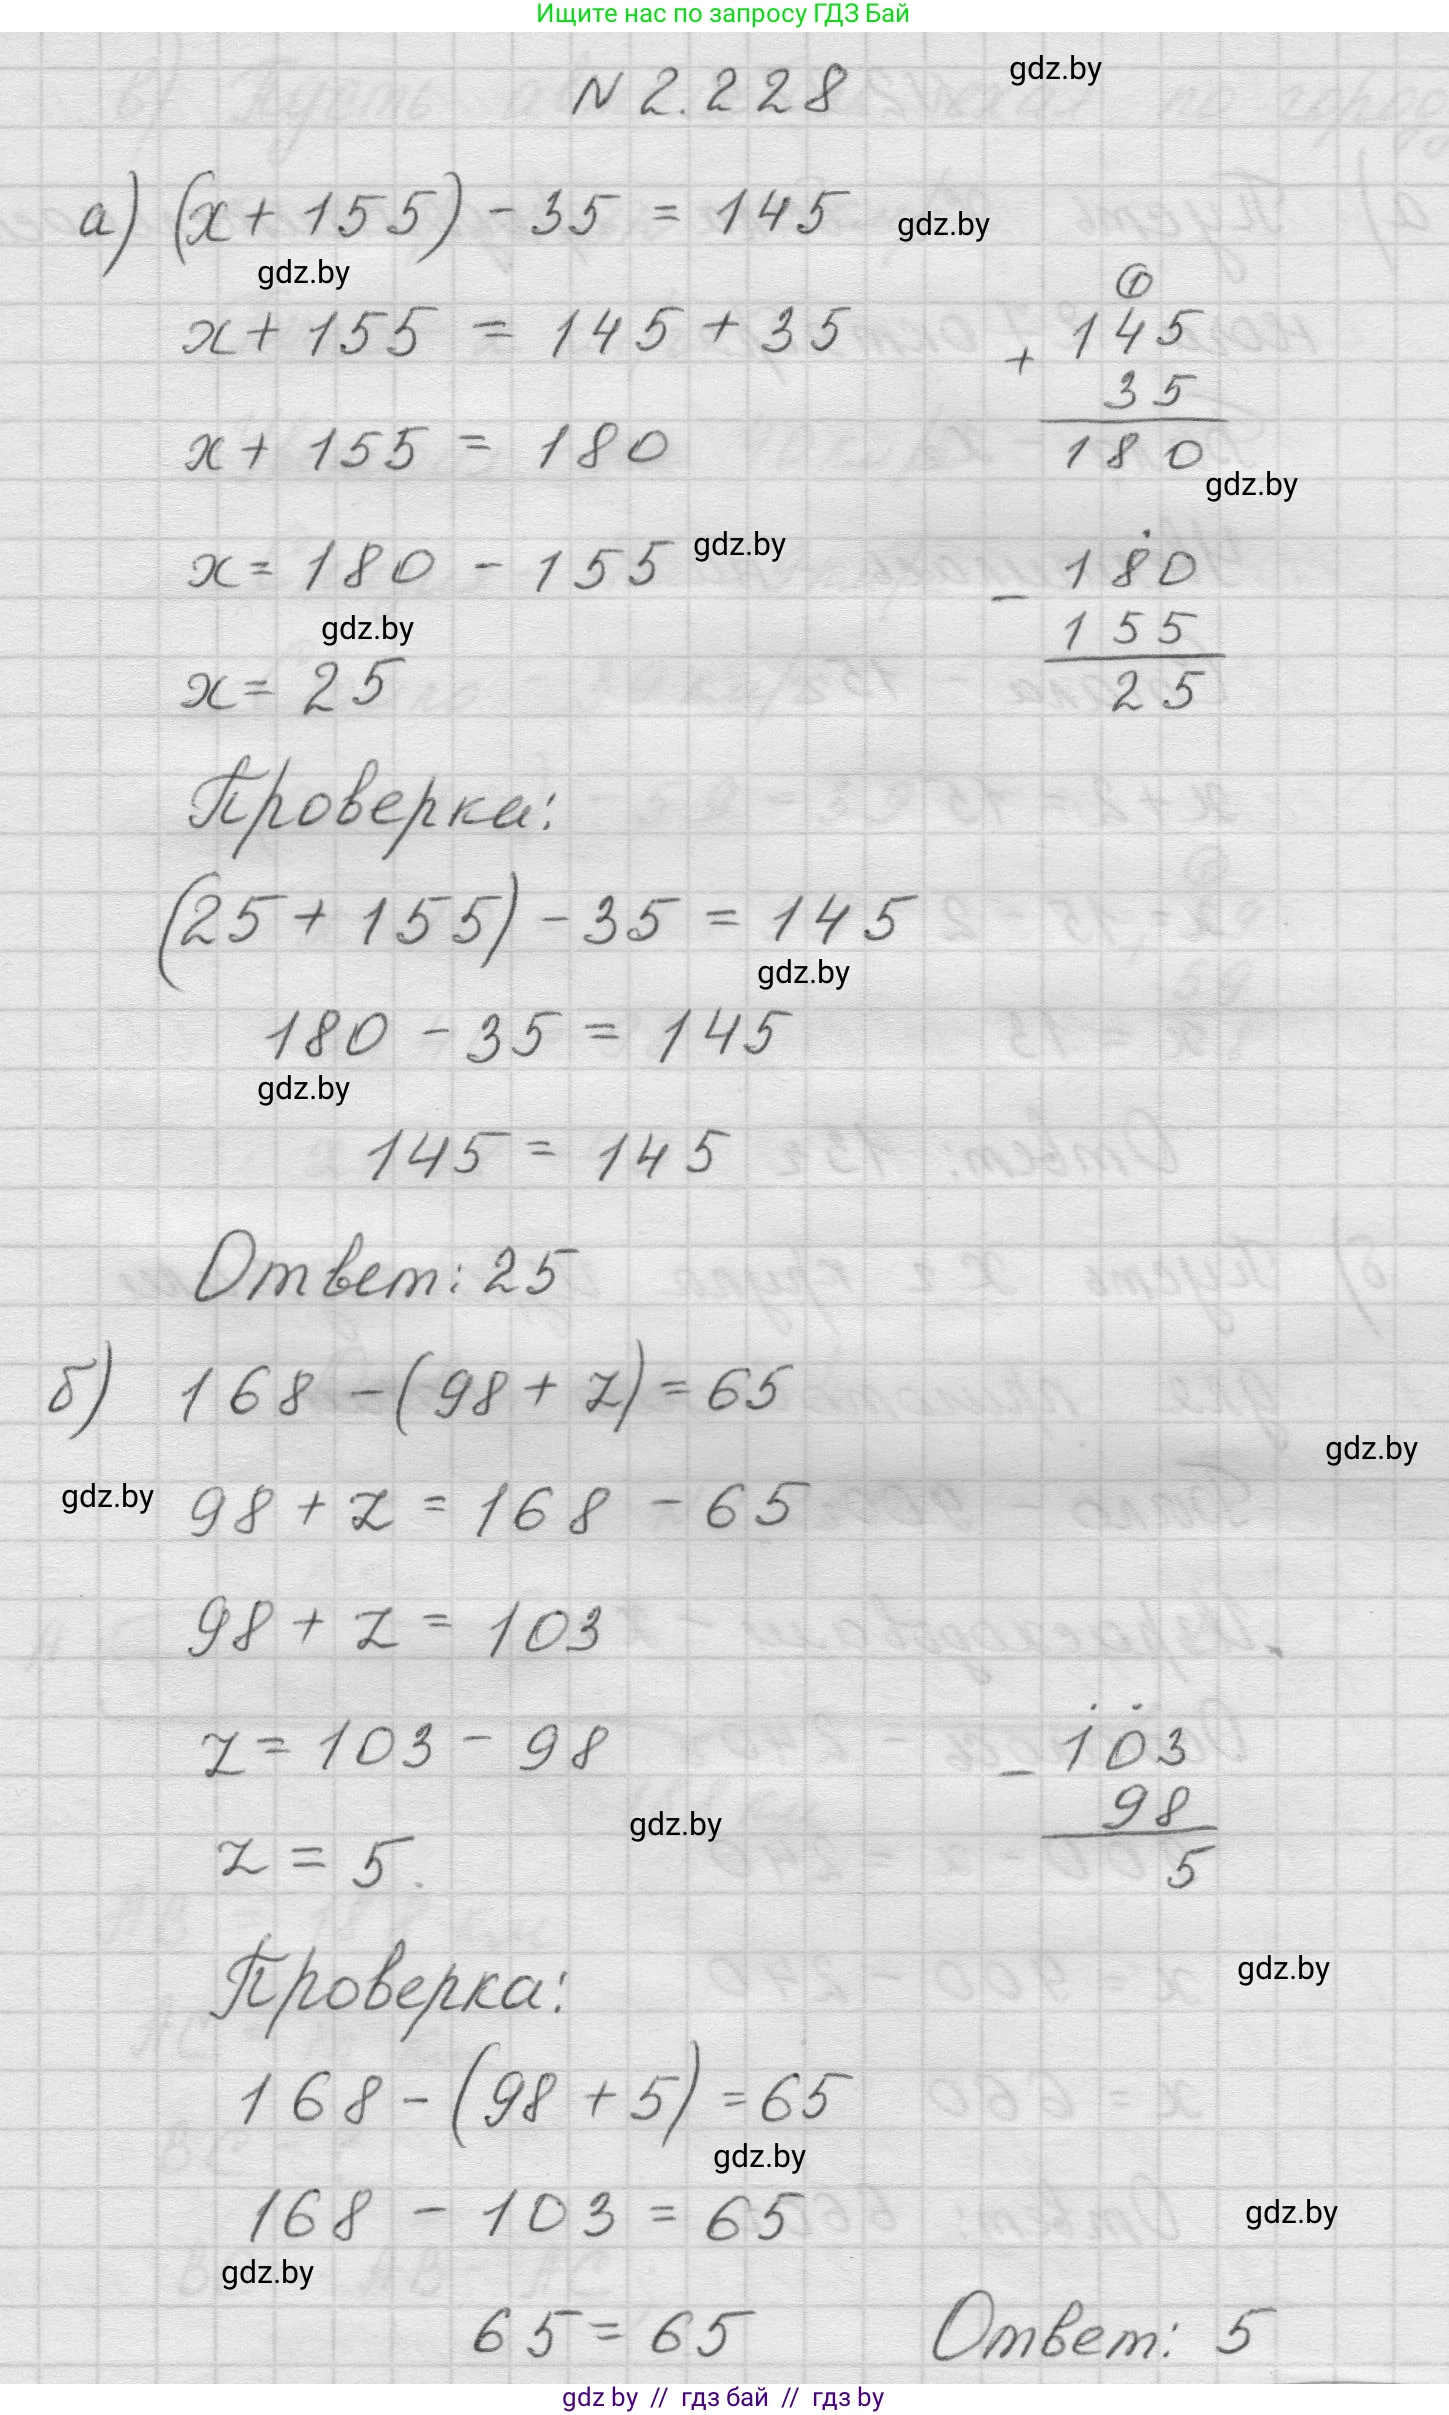 Ищите нас по запросу ГДЗ Бай
N 2.228
gdz.by
а) (x + 155) - 35 = 145
gdz.by
gdz.by
x + 155 = 145 + 35
1
+ 145
35
180
x + 155 = 180
gdz.by
x = 180 - 155
gdz.by
- 180
155
25
gdz.by
x = 25
Проверка:
(25 + 155) - 35 = 145
gdz.by
180 - 35 = 145
gdz.by
145 = 145
Ответ: 25
б) 168 - (98 + z) = 65
gdz.by
gdz.by
98 + z = 168 - 65
98 + z = 103
z = 103 - 98
- 103
98
5
gdz.by
z = 5.
Проверка:
gdz.by
168 - (98 + 5) = 65
gdz.by
168 - 103 = 65
gdz.by
gdz.by
65 = 65
Ответ: 5
gdz by // гдз бай // гдз by